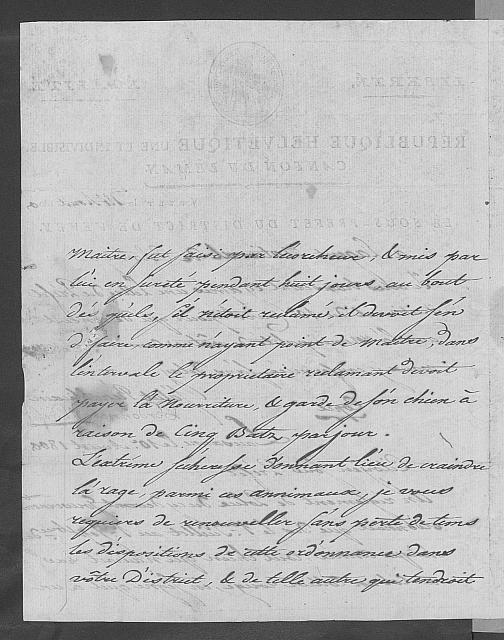 Maitre, fut saisi par l'ecorcheur, & mis par
lui en sureté pendant huit jours, au bout
des quels, s'il n'étoit reclamé, il devoit s'en
d'faire, comme n'ayant point de Maitre, dans
l'intervale le proprietaire reclamant devoit
payer la Nourriture, & garde de son chien à
raison de Cinq Batz par jour.
L'extrème sécheresse donnant lieu de craindre
la rage, parmi ces annimaux, je vous
requiers de renouveller sans perte de tems
les dispositions de cette ordonnance dans
vôtre District, & de telle autre qui tendroit